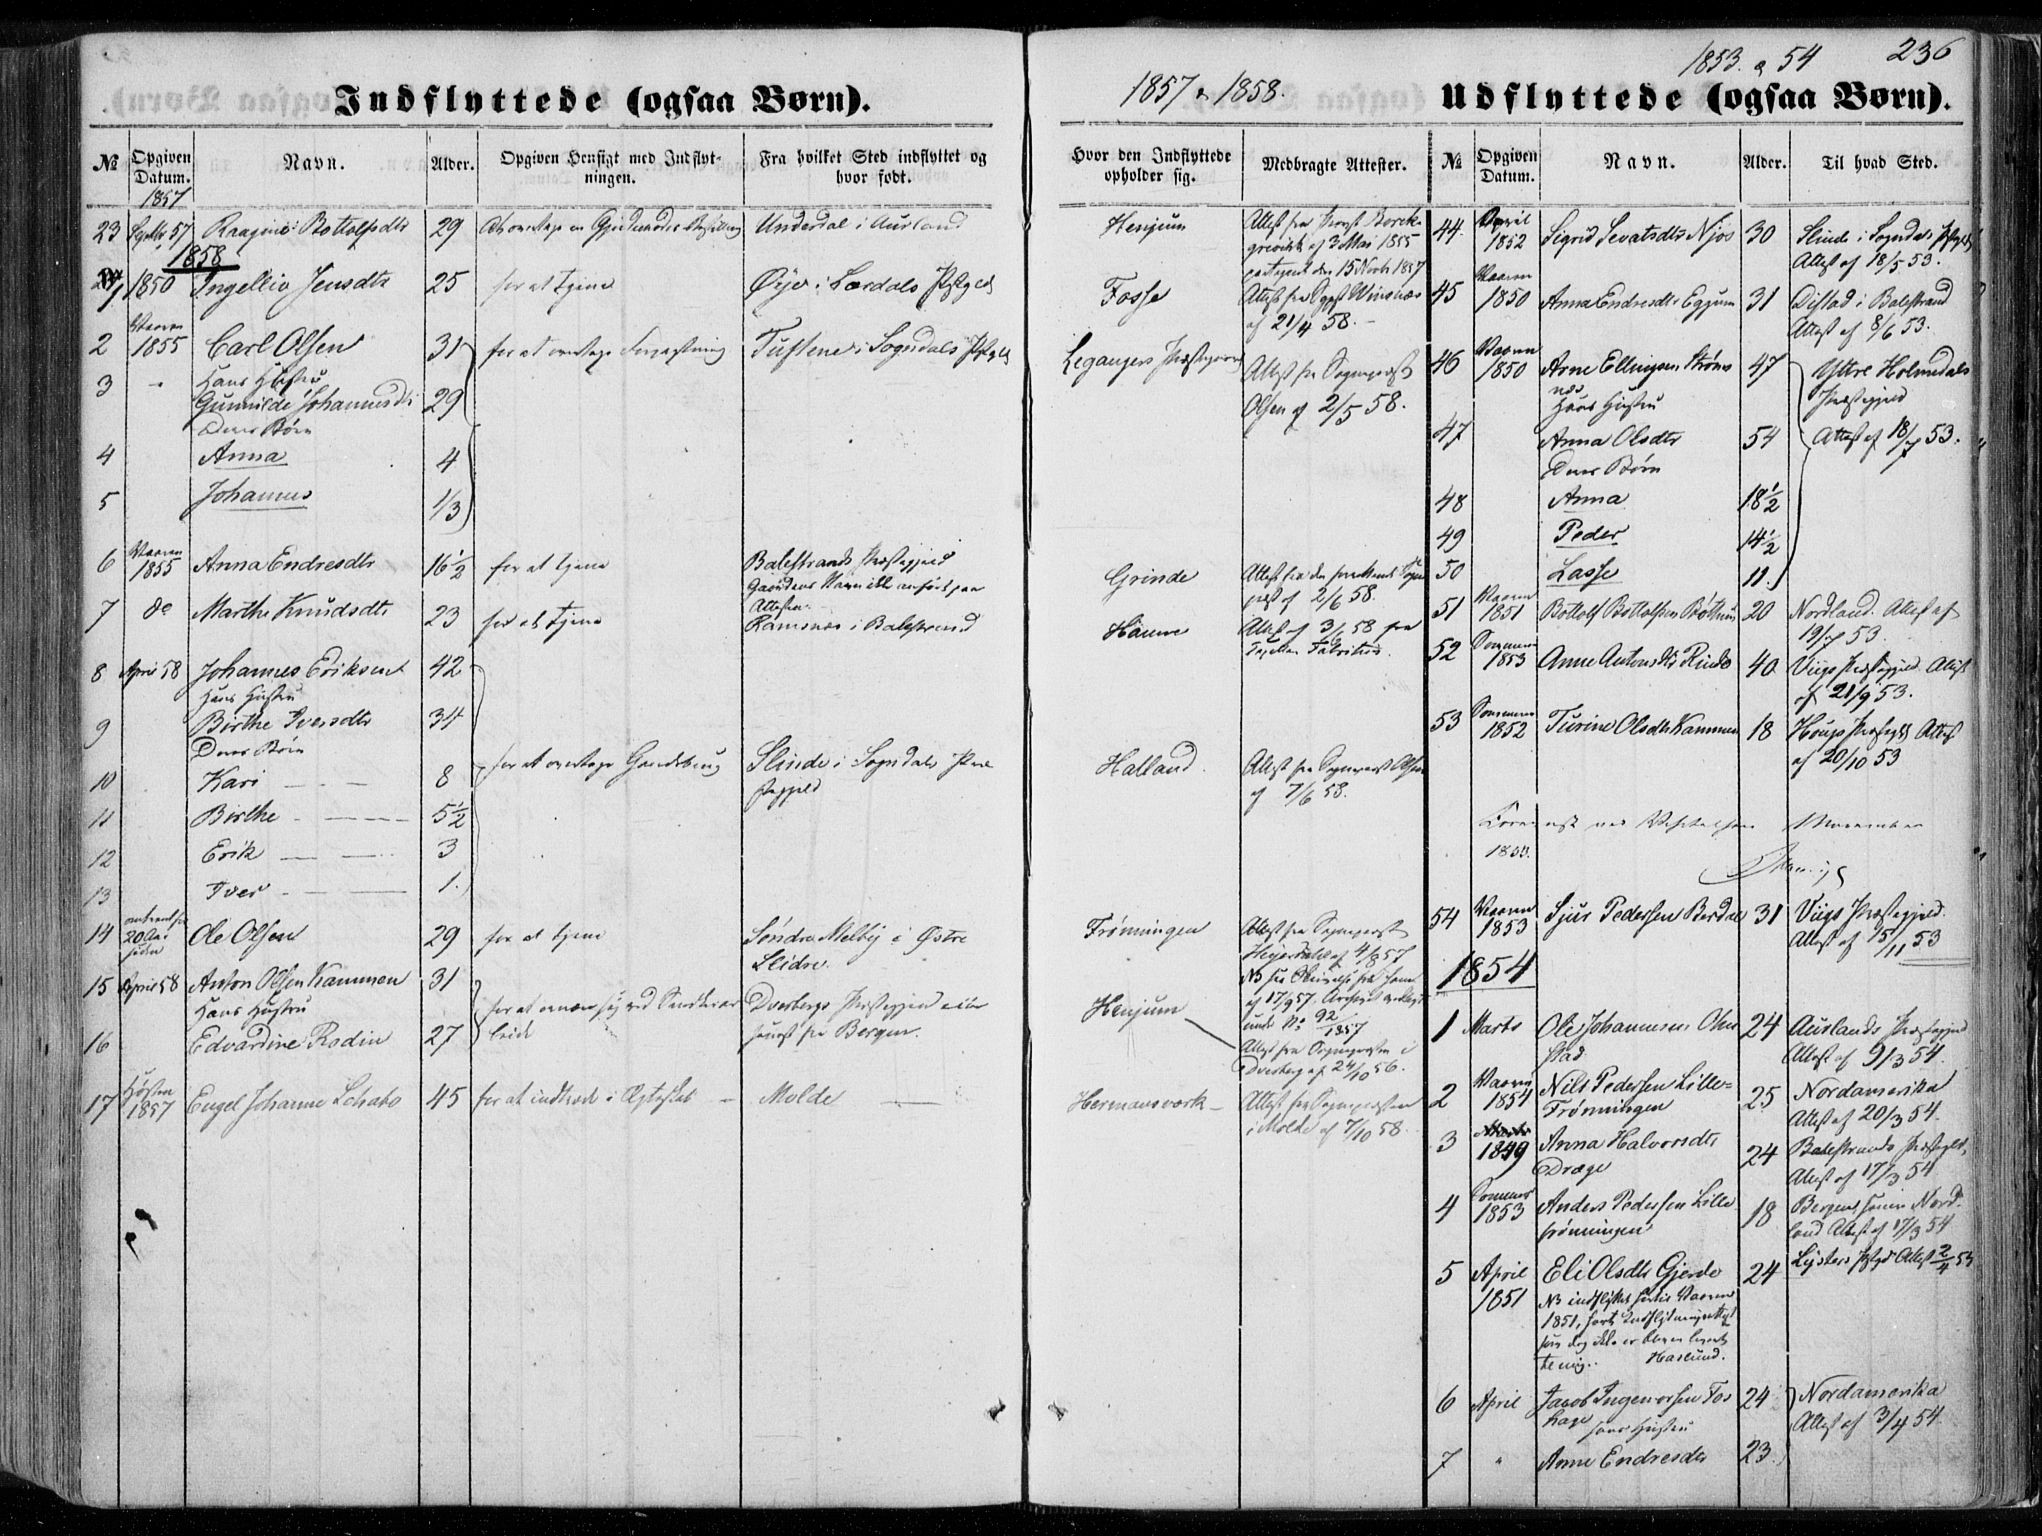 1853. & 54
236
Indflyttede (ogsaa Børn).
1857 & 1858.
Udflyttede (ogsaa Børn).
№
Opgiven Datum.
Navn.
Alder.
Opgiven Hensigt med Indflytningen.
Fra hvilket Sted indflyttet og hvor født.
Hvor den Indflyttede opholder sig.
Medbragte Attester.
1857
23 57 Raagine Bottolfsdtr 29 Underdal i Aurland Henjum
Attest fra Provst
af 3 Mai 1855
den 15 Novb 1857
1858
1 1850 Ingelliv Jensdtr 25 for at tjene Øye i Lærdals Pstgjeld Fosse
Attest fra Winsnes
af 21/4 58.
2 Vaaren 1855 Carl Olsen 31 for at overtage Forpagtning Tuftene i Sogndals Pstgjeld Leganger Præstegaard
Attest fra Sognepræst
Olsen af 2/5 58.
3 " Hans Hustru
Gunnilde Johannesdtr 29
Deres Børn
4 Anna 4
5 Johannes 1/3
6 Vaaren 1855 Anna Endresdtr 16 1/2 for at tjene Balestrands Præstegjeld
Gaardens Navn ikke anført paa
Attesten.
Grinde
2/6 58.
7 do Marthe Knudsdtr 23 for at tjene Ramsnæs i Balestrand
Attest af 3/6 58 fra
8 April 58 Johannes Eriksen 42
Hans Hustru
9 Birthe Iversdtr 34
Deres Børn
for at overtage Gaardsbrug Slinde i Sogndals Præstegjeld Halland.
Attest fra Sognepræst Olsen
af 7/6 58.
10 Kari 8
11 Birthe 5 1/2
12 Erik 3
13 Iver 1.
14 20 Aar siden Ole Olsen 29 for at tjene Søndre Melby i Østre
Slidre.
Frønningen
Attest fra Sognepræst
af 4/8 57
af 17/9 57.
№ 92/1857
15 April 58 Anton Olsen Kammen 31
Hans Hustru
Dverbergs Præstegjeld
fra Bergen.
Henjum
Attest fra Sognepræsten i
Dverberg af 24/10 56.
16 Edvardine Rodin 27
17 Høsten 1857 Engel Johanne Schabo 45 for at indtræde i Ægteskab Molde Hermansværk
Attest fra Sognepræsten
i Molde af 7/10 58.
№
Opgiven Datum.
Navn.
Alder.
Til hvad Sted.
44. April 1852 Sigrid Sevatsdtr Njøs 30 Slinde i Sogndals Pstgjeld
Attest af 18/5 53.
45 Vaaren 1850 Anna Endresdtr Eggum 31 Distad i Balestrand
Attest af 8/6 53.
46 Vaaren 1850 Arne Ellingsen Strømsnæs 47 Yttre Holmedals
Præstegjeld
Hans Hustru
47 Anna Olsdtr 54 Attest af 18/7 53.
Deres Børn
48 Anna 18 1/2
49 Peder 14 1/2
50 Lasse 11.
51 Vaaren 1851 Bottolf Bottolfsen Bøthun 20 Nordland. Attest af
19/7 53.
52 Sommeren 1853 Anne Antonsdtr Rinde 40. Viigs Præstegjeld. Attest
af 21/9 53.
53 Sommeren 1852 Turine Olsdtr Kammen 18 Houg Præstegjeld Attest
af 20/10 53
November
1853.
54 Vaaren 1853 Sjur Pedersen Berdal 31 Viigs Præstegjeld.
Attest af 15/11 53
1854
1 Marts Ole Johannesen Ohnstad 24 Aurlands Præstegjeld
Attest af 9/3 54.
2 Vaaren 1854 Nils Pedersen Lille-
Frønningen 25 Nordamerika
Attest af 20/3 54.
3 1849 Anna Halvorsdtr
Drægn 24 Balestrands Præstegjeld,
Attest af 17/3 54
4 Sommeren 1853 Anders Pedersen Lille
frønningen 18 Nord
land Attest af 17/3 54
5 April 1851 Eli Olsdtr Gjerde 24 Lysters Pstgd Attest 2/4 53
NB indflyttet hertil Vaaren
1851,
Haslund.
6 April Jacob Ingeworsen Fos
hage 24 Nordamerika
Attest af 3/4 54
hans Hustru
7 " Anne Endresdtr 23.